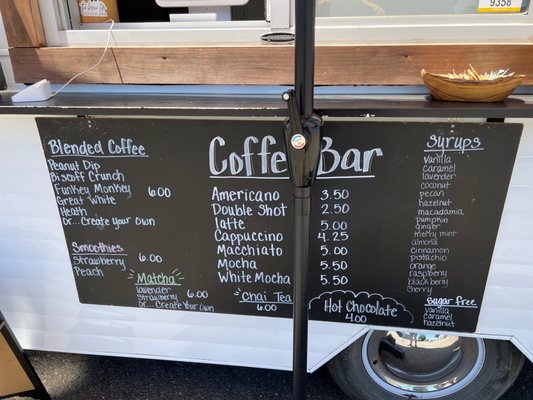 9358
Blended Coffee
Peanut Dip
Biscoff Crunch
Funkey Monkey 6.00
Great White
Heath
Or...Create your Own
Smoothies
Strawberry, 6.00
Peach
Matcha
lavender
Strawberry 6.00
Or...Create your Own
Coffee Bar
Americano 3.50
Double Shot 2.50
latte 5.00
Cappuccino 4.25
Macchiato 5.00
Mocha 5.50
White Mocha 5.50
Chai Tea
6.00
Hot Chocolate
4.00
Syrups
vanilla
caramel
lavender
coconut
pecan
hazelnut
macadamia
pumpkin
ginger
merry mint
almond
cinnamon
pistachio
orange
raspberry
blackberry
cherry
sugar free
vanilla
caramel
hazelnut